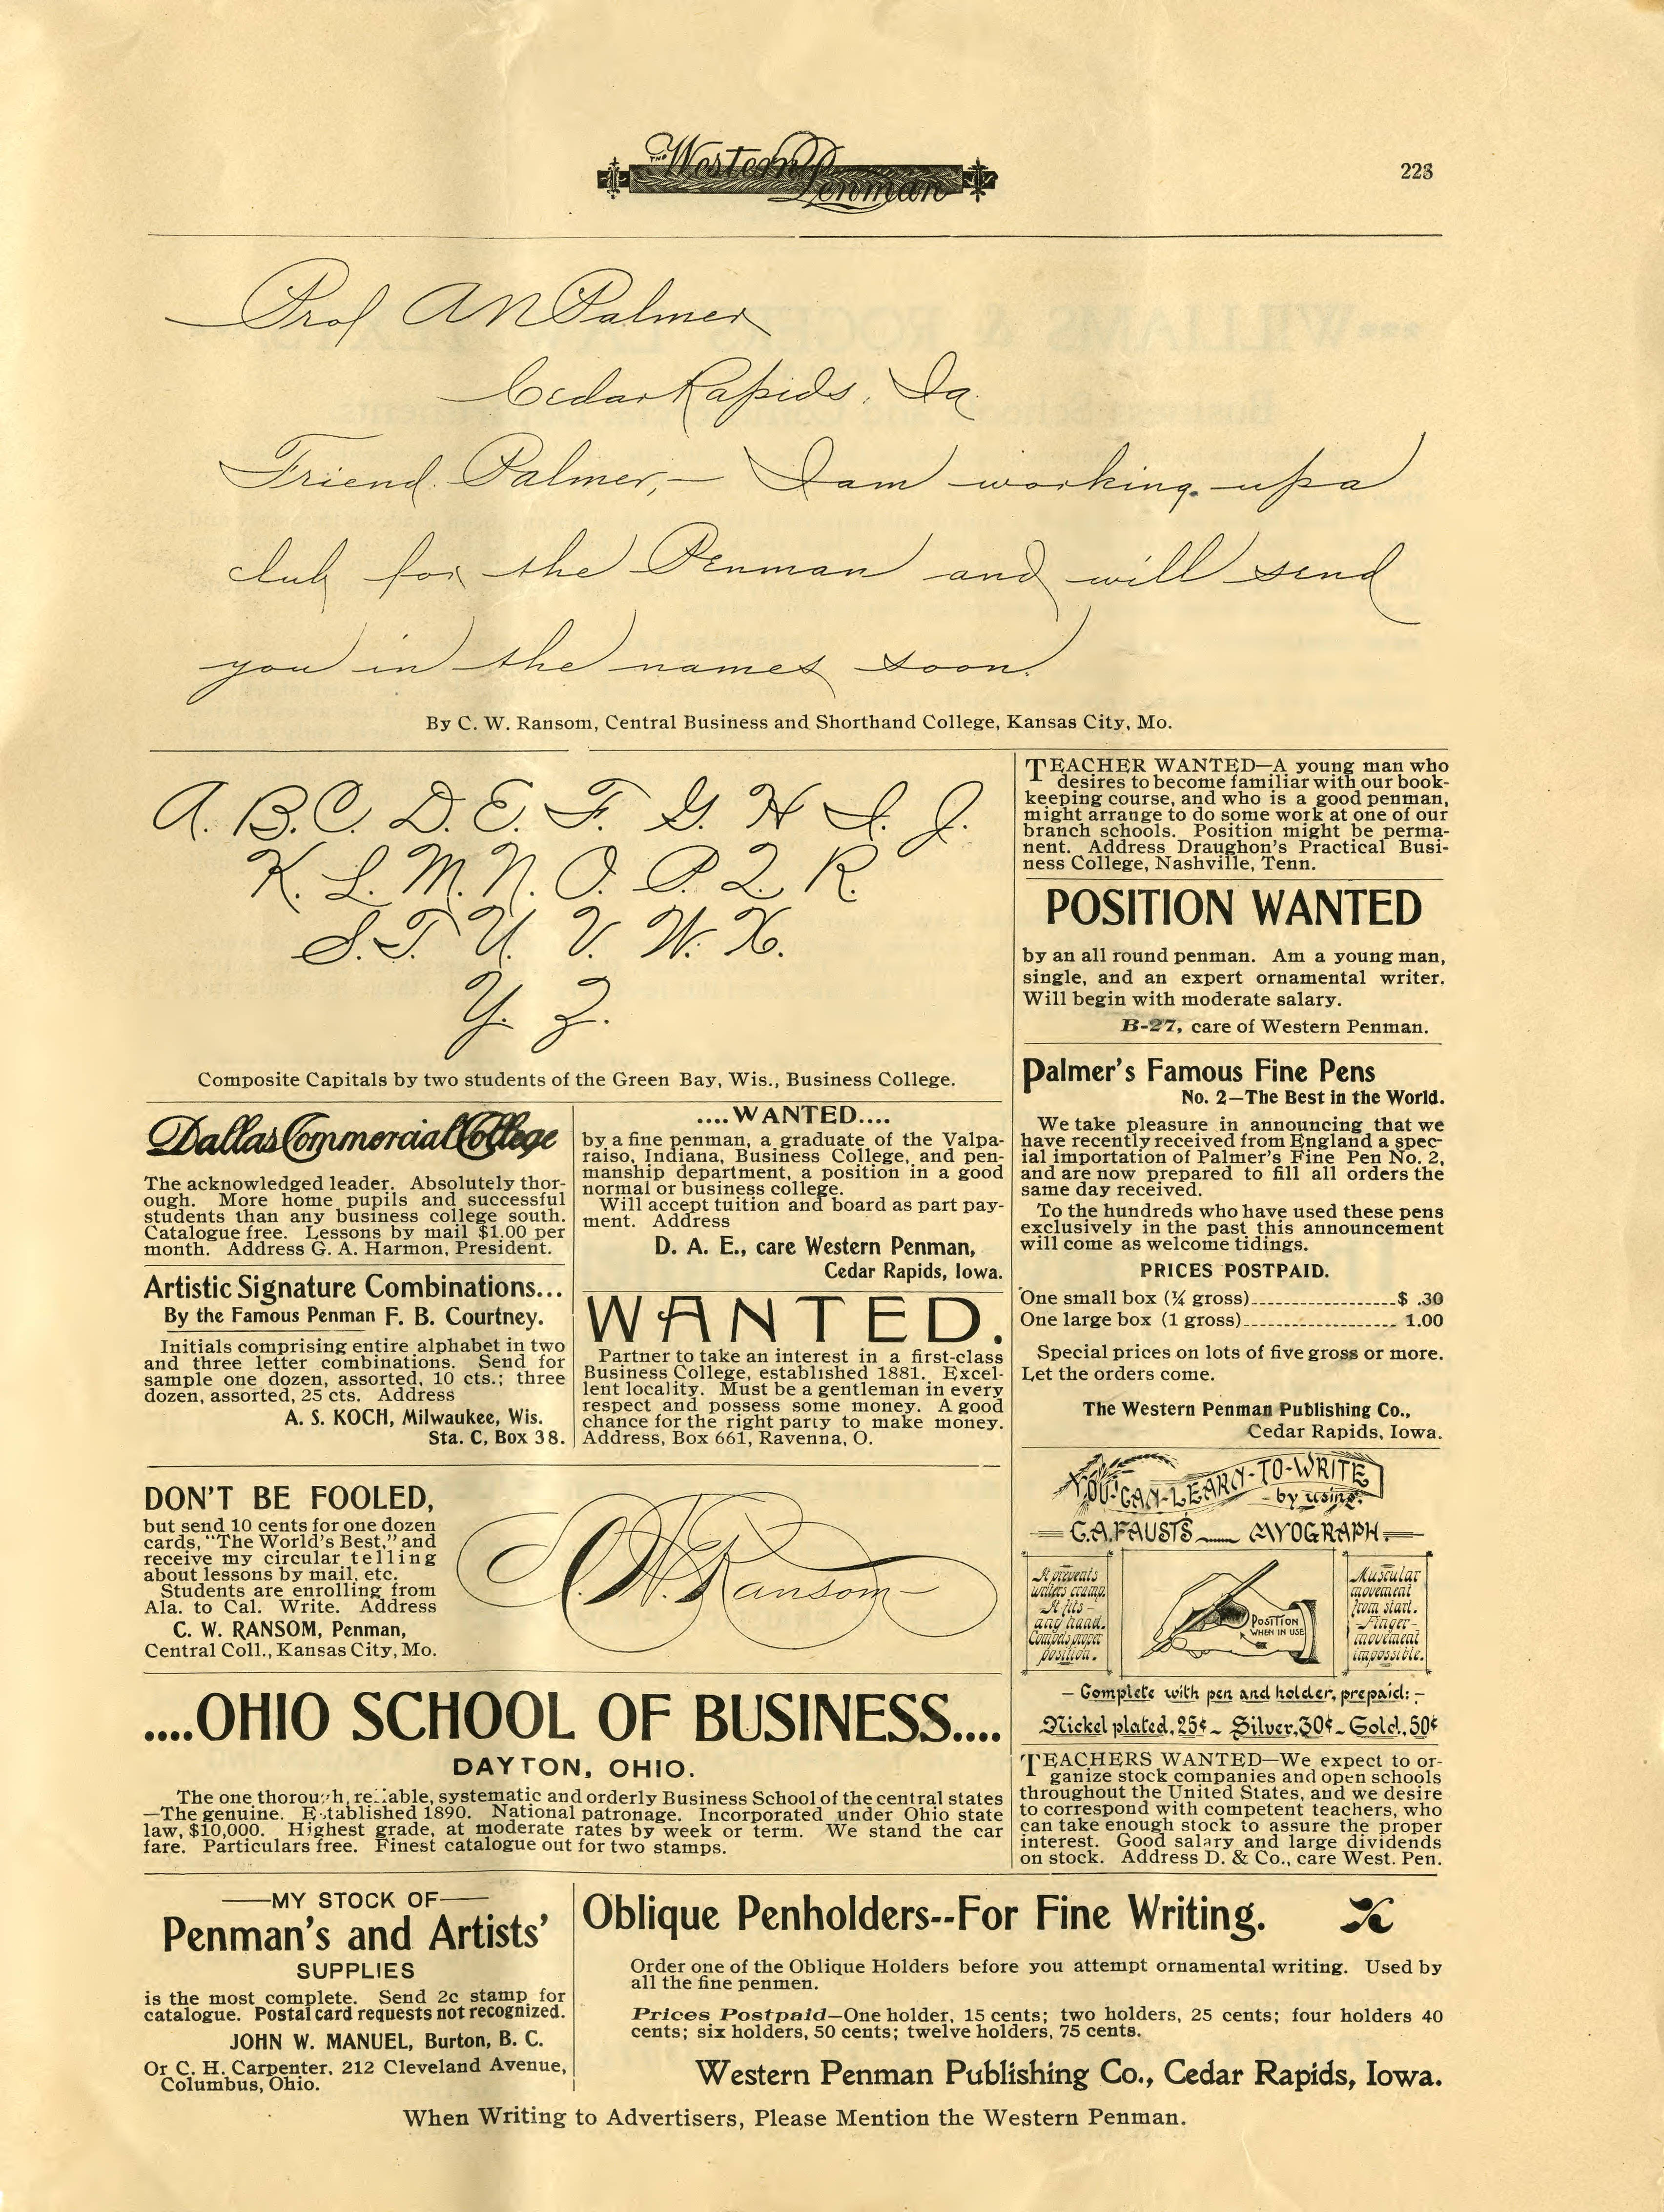 The Western Penman
223
Prof A N Palmer
Cedar Rapids, Ia.
Friend Palmer,— I am working up a
club for the Penman and will send
you in the names soon.
By C. W. Ransom, Central Business and Shorthand College, Kansas City, Mo.
A. B. C. D. E. F. G. H I. J.
K. L. M. N. O. P. Q R.
S. T. U. V. W. X.
Y. Z.
Composite Capitals by two students of the Green Bay, Wis., Business College.
Dallas Commercial College
The acknowledged leader. Absolutely thor-
ough. More home pupils and successful
students than any business college south.
Catalogue free. Lessons by mail $1.00 per
month. Address G. A. Harmon, President.
Artistic Signature Combinations...
By the Famous Penman F. B. Courtney.
Initials comprising entire alphabet in two
and three letter combinations. Send for
sample one dozen, assorted, 10 cts.; three
dozen, assorted, 25 cts. Address
A. S. KOCH, Milwaukee, Wis.
Sta. C, Box 38.
....WANTED....
by a fine penman, a graduate of the Valpa-
raiso, Indiana, Business College, and pen-
manship department, a position in a good
normal or business college.
Will accept tuition and board as part pay-
ment. Address
D. A. E., care Western Penman,
Cedar Rapids, Iowa.
WANTED.
Partner to take an interest in a first-class
Business College, established 1881. Excel-
lent locality. Must be a gentleman in every
respect and possess some money. A good
chance for the right party to make money.
Address, Box 661, Ravenna, O.
DON'T BE FOOLED,
but send 10 cents for one dozen
cards, "The World's Best," and
receive my circular telling
about lessons by mail, etc.
Students are enrolling from
Ala. to Cal. Write. Address
C. W. RANSOM, Penman,
Central Coll., Kansas City, Mo.
C. W. Ransom
....OHIO SCHOOL OF BUSINESS....
DAYTON, OHIO.
The one thorough, reliable, systematic and orderly Business School of the central states
—The genuine. Established 1890. National patronage. Incorporated under Ohio state
law, $10,000. Highest grade, at moderate rates by week or term. We stand the car
fare. Particulars free. Finest catalogue out for two stamps.
TEACHER WANTED—A young man who
desires to become familiar with our book-
keeping course, and who is a good penman,
might arrange to do some work at one of our
branch schools. Position might be perma-
nent. Address Draughon's Practical Busi-
ness College, Nashville, Tenn.
POSITION WANTED
by an all round penman. Am a young man,
single, and an expert ornamental writer.
Will begin with moderate salary.
B-27, care of Western Penman.
Palmer's Famous Fine Pens
No. 2—The Best in the World.
We take pleasure in announcing that we
have recently received from England a spec-
ial importation of Palmer's Fine Pen No. 2,
and are now prepared to fill all orders the
same day received.
To the hundreds who have used these pens
exclusively in the past this announcement
will come as welcome tidings.
PRICES POSTPAID.
One small box (¼ gross)....................$ .30
One large box (1 gross).................... 1.00
Special prices on lots of five gross or more.
Let the orders come.
The Western Penman Publishing Co.,
Cedar Rapids, Iowa.
YOU-CAN-LEARN-TO-WRITE
- by using.
C.A. FAUST'S MYOGRAPH.
It prevents
writers cramp.
It fits
any hand.
Compels proper
position.
POSITION
WHEN IN USE
Muscular
movement
from start.
Finger-
movement
impossible.
— Complete with pen and holder, prepaid: —
Nickel plated, 25¢ ~ Silver, 30¢ ~ Gold, 50¢
TEACHERS WANTED—We expect to or-
ganize stock companies and open schools
throughout the United States, and we desire
to correspond with competent teachers, who
can take enough stock to assure the proper
interest. Good salary and large dividends
on stock. Address D. & Co., care West. Pen.
—MY STOCK OF—
Penman's and Artists'
SUPPLIES
is the most complete. Send 2c stamp for
catalogue. Postal card requests not recognized.
JOHN W. MANUEL, Burton, B. C.
Or C. H. Carpenter, 212 Cleveland Avenue,
Columbus, Ohio.
Oblique Penholders--For Fine Writing.
Order one of the Oblique Holders before you attempt ornamental writing. Used by
all the fine penmen.
Prices Postpaid—One holder, 15 cents; two holders, 25 cents; four holders 40
cents; six holders, 50 cents; twelve holders, 75 cents.
Western Penman Publishing Co., Cedar Rapids, Iowa.
When Writing to Advertisers, Please Mention the Western Penman.